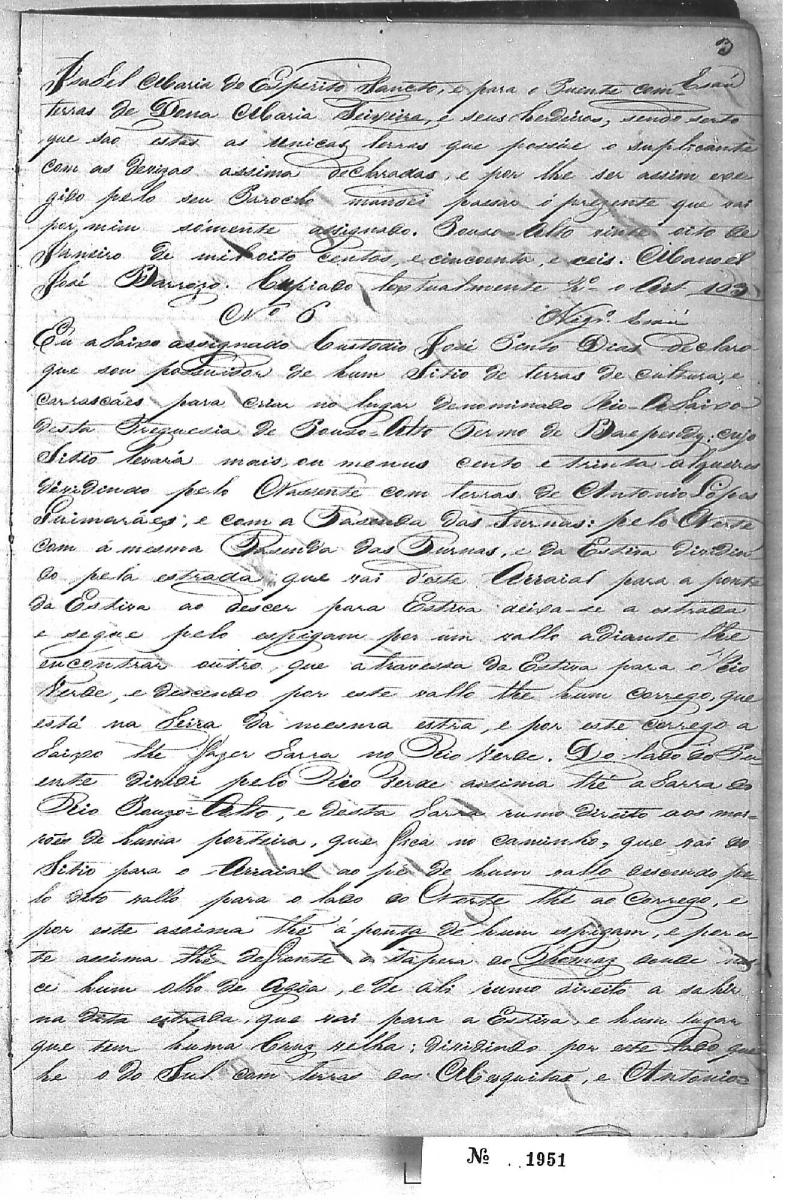 3
Isabel Maria do Espirito Sancto, e para o Puente com
terras de Dona Maria Teixeira, e seus herdeiros, sendo serto
que são estas as unicas terras que possue o suplicante
com as devizas assima declaradas, e por lhe ser assim exe
gido pelo seu Parocho mandei passar o prezente que vai
por mim sómente assignado. Pouzo-Alto vinte oito de
Janeiro de mil oito centos, e cincoenta, e ceis. Manoel
José Barrozo. Cupiado textualmente o Art 103
Nº 6
Eu abaixo assignado Custodio José Pinto Dias declaro
que sou possuidor de hum Sitio de terras de cultura, e
carrascáes para criar no lugar denominado Rio-Abaixo
desta Freguesia de Pouzo-Alto Termo de Baependy: cujo
Sitio levará mais, ou menus cento e trinta alqueires
dividindo pelo Nassente com terras de Antonio Lopes
Guimaráes, e com a Fasenda das Furnas: pelo Norte
com á mesma Fasenda das Furnas, e da Estiva dividin
do pela estrada que vai d'este Arraial para a ponte
da Estiva ao descer para Estiva deixa-se a estrada
e segue pelo espigam por um vallo adiante thé
encontrar outro, que atravessa da Estiva para o Rio
Verde, e descendo por este vallo thé hum corrego, que
está na beira da mesma estra, e por este corrego a
baixo thé fazer barra no Rio Verde. Do lado do Pu
ente dividi pelo Rio Verde assima thé a barra do
Rio Pouzo-Alto, e desta barra rumo direito aos moi-
rões de huma porteira, que fica no caminho, que vai do
Sitio para o Arraial ao pé de hum vallo descendo pe
lo dito vallo para o lado do Norte thé ao corrego, e
por este assima thé á ponta de hum espigam, e por es
te assima thé defronte a tapera do Thomaz donde nas
ce hum olho de agoa, e de ali rumo direito a sahir
na dita estrada, que vai para a Estiva, e hum lugar
que tem huma Cruz velha: dividindo por este lado que
he o do Sul com terras dos Mesquitas, e Antonio
Nº 1951